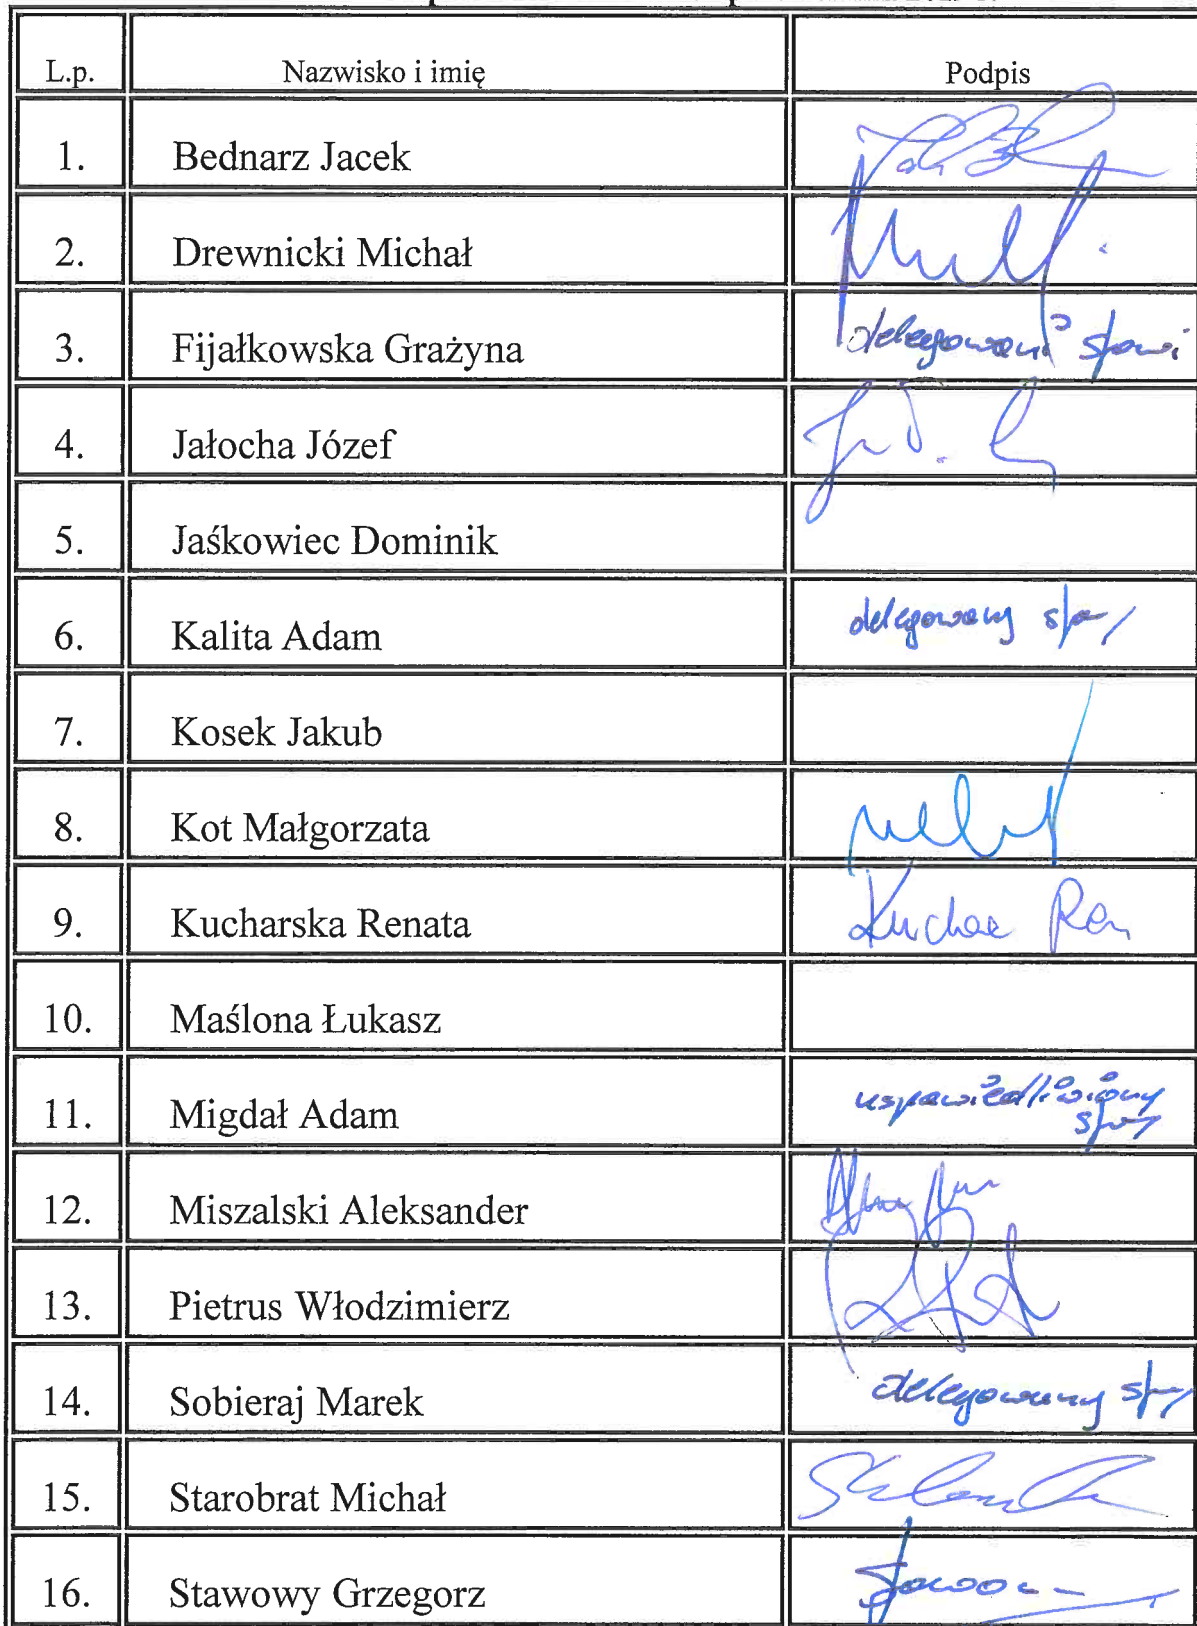 L.p. Nazwisko i imię Podpis
1. Bednarz Jacek
2. Drewnicki Michał
3. Fijałkowska Grażyna
4. Jałocha Józef
5. Jaśkowiec Dominik
6. Kalita Adam delegowany
7. Kosek Jakub
8. Kot Małgorzata
9. Kucharska Renata Kuchar Ren
10. Maślona Łukasz
11. Migdał Adam
12. Miszalski Aleksander
13. Pietrus Włodzimierz
14. Sobieraj Marek delegowany
15. Starobrat Michał
16. Stawowy Grzegorz